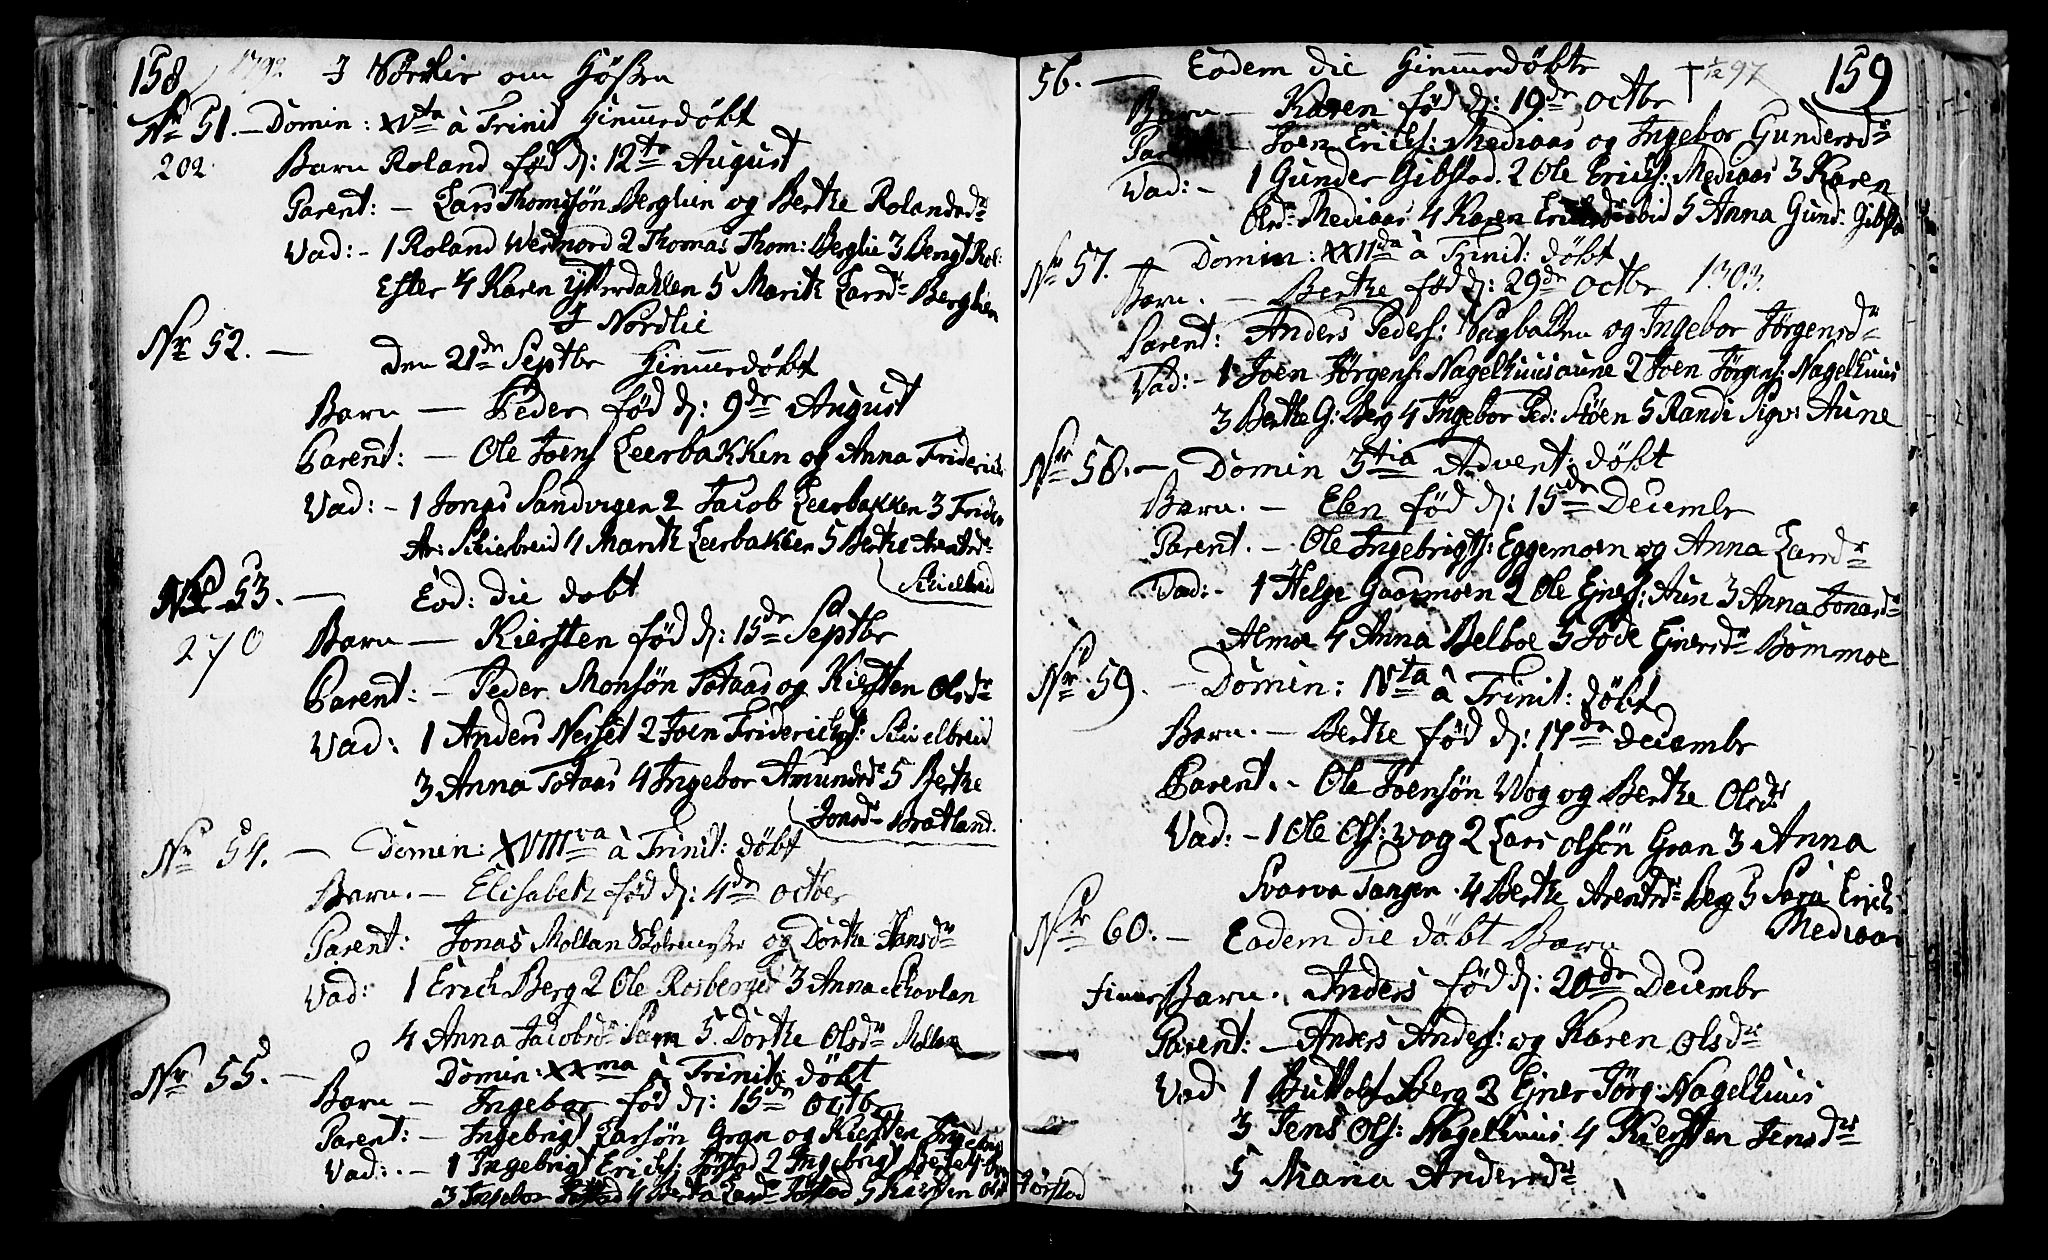 158 1792 I Nordlie om Hösten
Nr 51. - Domin: XVta à Trinit Hiemmedöbt
202 Barn Roland född d: 12te August
Parent: - Lars Thomsön Berglien og Berthe Rolandsdr
Vad: - 1 Roland Westnord 2 Thomas Thom: Berglie 3 Bengt Rol:
Ester 4 Karen Ytterdahlen 5 Marith Larsdr Berglien
I Nordlie
Nr 52. - den 21de Septbr Hiemmedöbt
Barn - Peder född d: 9de August
Parent: - Ole Joens Leerbakken og Anna Friderich
Vad: - 1 Jonas Sandvigen 2 Jacob Leerbakken 3 Frider
Ar: Skielbreid 4 Marith Leerbakken 5 Berthe Arentsdr
Skielbreid
Nr 53. - Eod: die dobt
270 Barn - Kiersten född d: 15de Septbr
Parent: - Peder Monsön Totaas og Kiersten Olsdr
Vad: 1 Anders Nesset 2 Joen Friderichs: Skielbreid
3 Anna Totaas 4 Ingebor Amundsdr 5 Berthe
Jonsdr Bratland.
Nr 54. - Domin: XVIIIva à Trinit: döbt
Barn. - Elisabeth född d: 4de octber
Parent: Jonas Mollan Skolemester og Dorthe Hansdr
Vad: 1 Erich Berg 2 Ole Rosberget 3 Anna Skovlan
4 Anna Jacobsdr Sam 5. Dorthe Olsdr Mollan
Nr 55. - Domin: XXma à Trinit: döbt
Barn - Ingebor född d: 15de octbr
Parent: - Ingebrigt Larsön Gran og Kiersten
Vad: - 1 Ingebrigt Erichs: Törstad 2 Ingebrigt
3 Ingebor 4 Berta Larsdr 5 Kiersten Olsdr Törstad
159
56. - Eodem die Hiemmedöbte † 1/12 97
Barn - Karen född d: 19de octbr
Parent - Joen Erichs: Mediaas og Ingebor Gundersdr
Vad: - 1 Gunder Gibstad. 2 Ole Erichs: Mediaas 3 Karen
Olsdr Mediaas 4 Karen ibid 5 Anna Gund: Gibsta
Nr 57. - Domin: XXIIda à Trinit: döbt
Barn. - Berthe född d: 29de octbr 1303.
Parent: Anders Peders: og Ingebor Jörgensdr
Vad: - 1 Joen Jörgens: Nagelhuusaune 2 Joen Jörgens: Nagelhuus
3 Berthe G: Berg 4 Ingebor Ped: Moen 5 Randi Sigv: Aune
Nr 58. - Domin 3tia Advent: döbt
Barn. - Elen född d: 15de Decembr
Parent. - Ole Ingebrigts: Eggemoen og Anna Larsdr
Vad: - 1 Helge Gaasmoen 2 Ole Ejners: Aun 3 Anna Jonasdr
Almoe 4 Anna Belboe 5 Ejnersdr Bömmoe
Nr. 59. - Domin: Nta à Trinit: döbt
Barn. - Berthe född d: 17de decembr
Parent. - Ole Joensön Wog og Berthe Olsdr
Vad: - 1 Ole Ols: Wog 2 Lars olsön Gran 3 Anna
Svarva Tangen. 4 Berthe Arentsdr Berg 5 Sara Erichs
Mediaas
Nr 60: - Eodem die döbt Barn
Barn. Anders född d: 20de Decembr
Parent: - Anders Anders: og Karen Olsdr
Vad 1 Berg 2 Ejner Jörg: Nagelhuus
3 Jens Ols: Nagelhuus 4 Kiersten Jensdr
5 Maria Andersdr